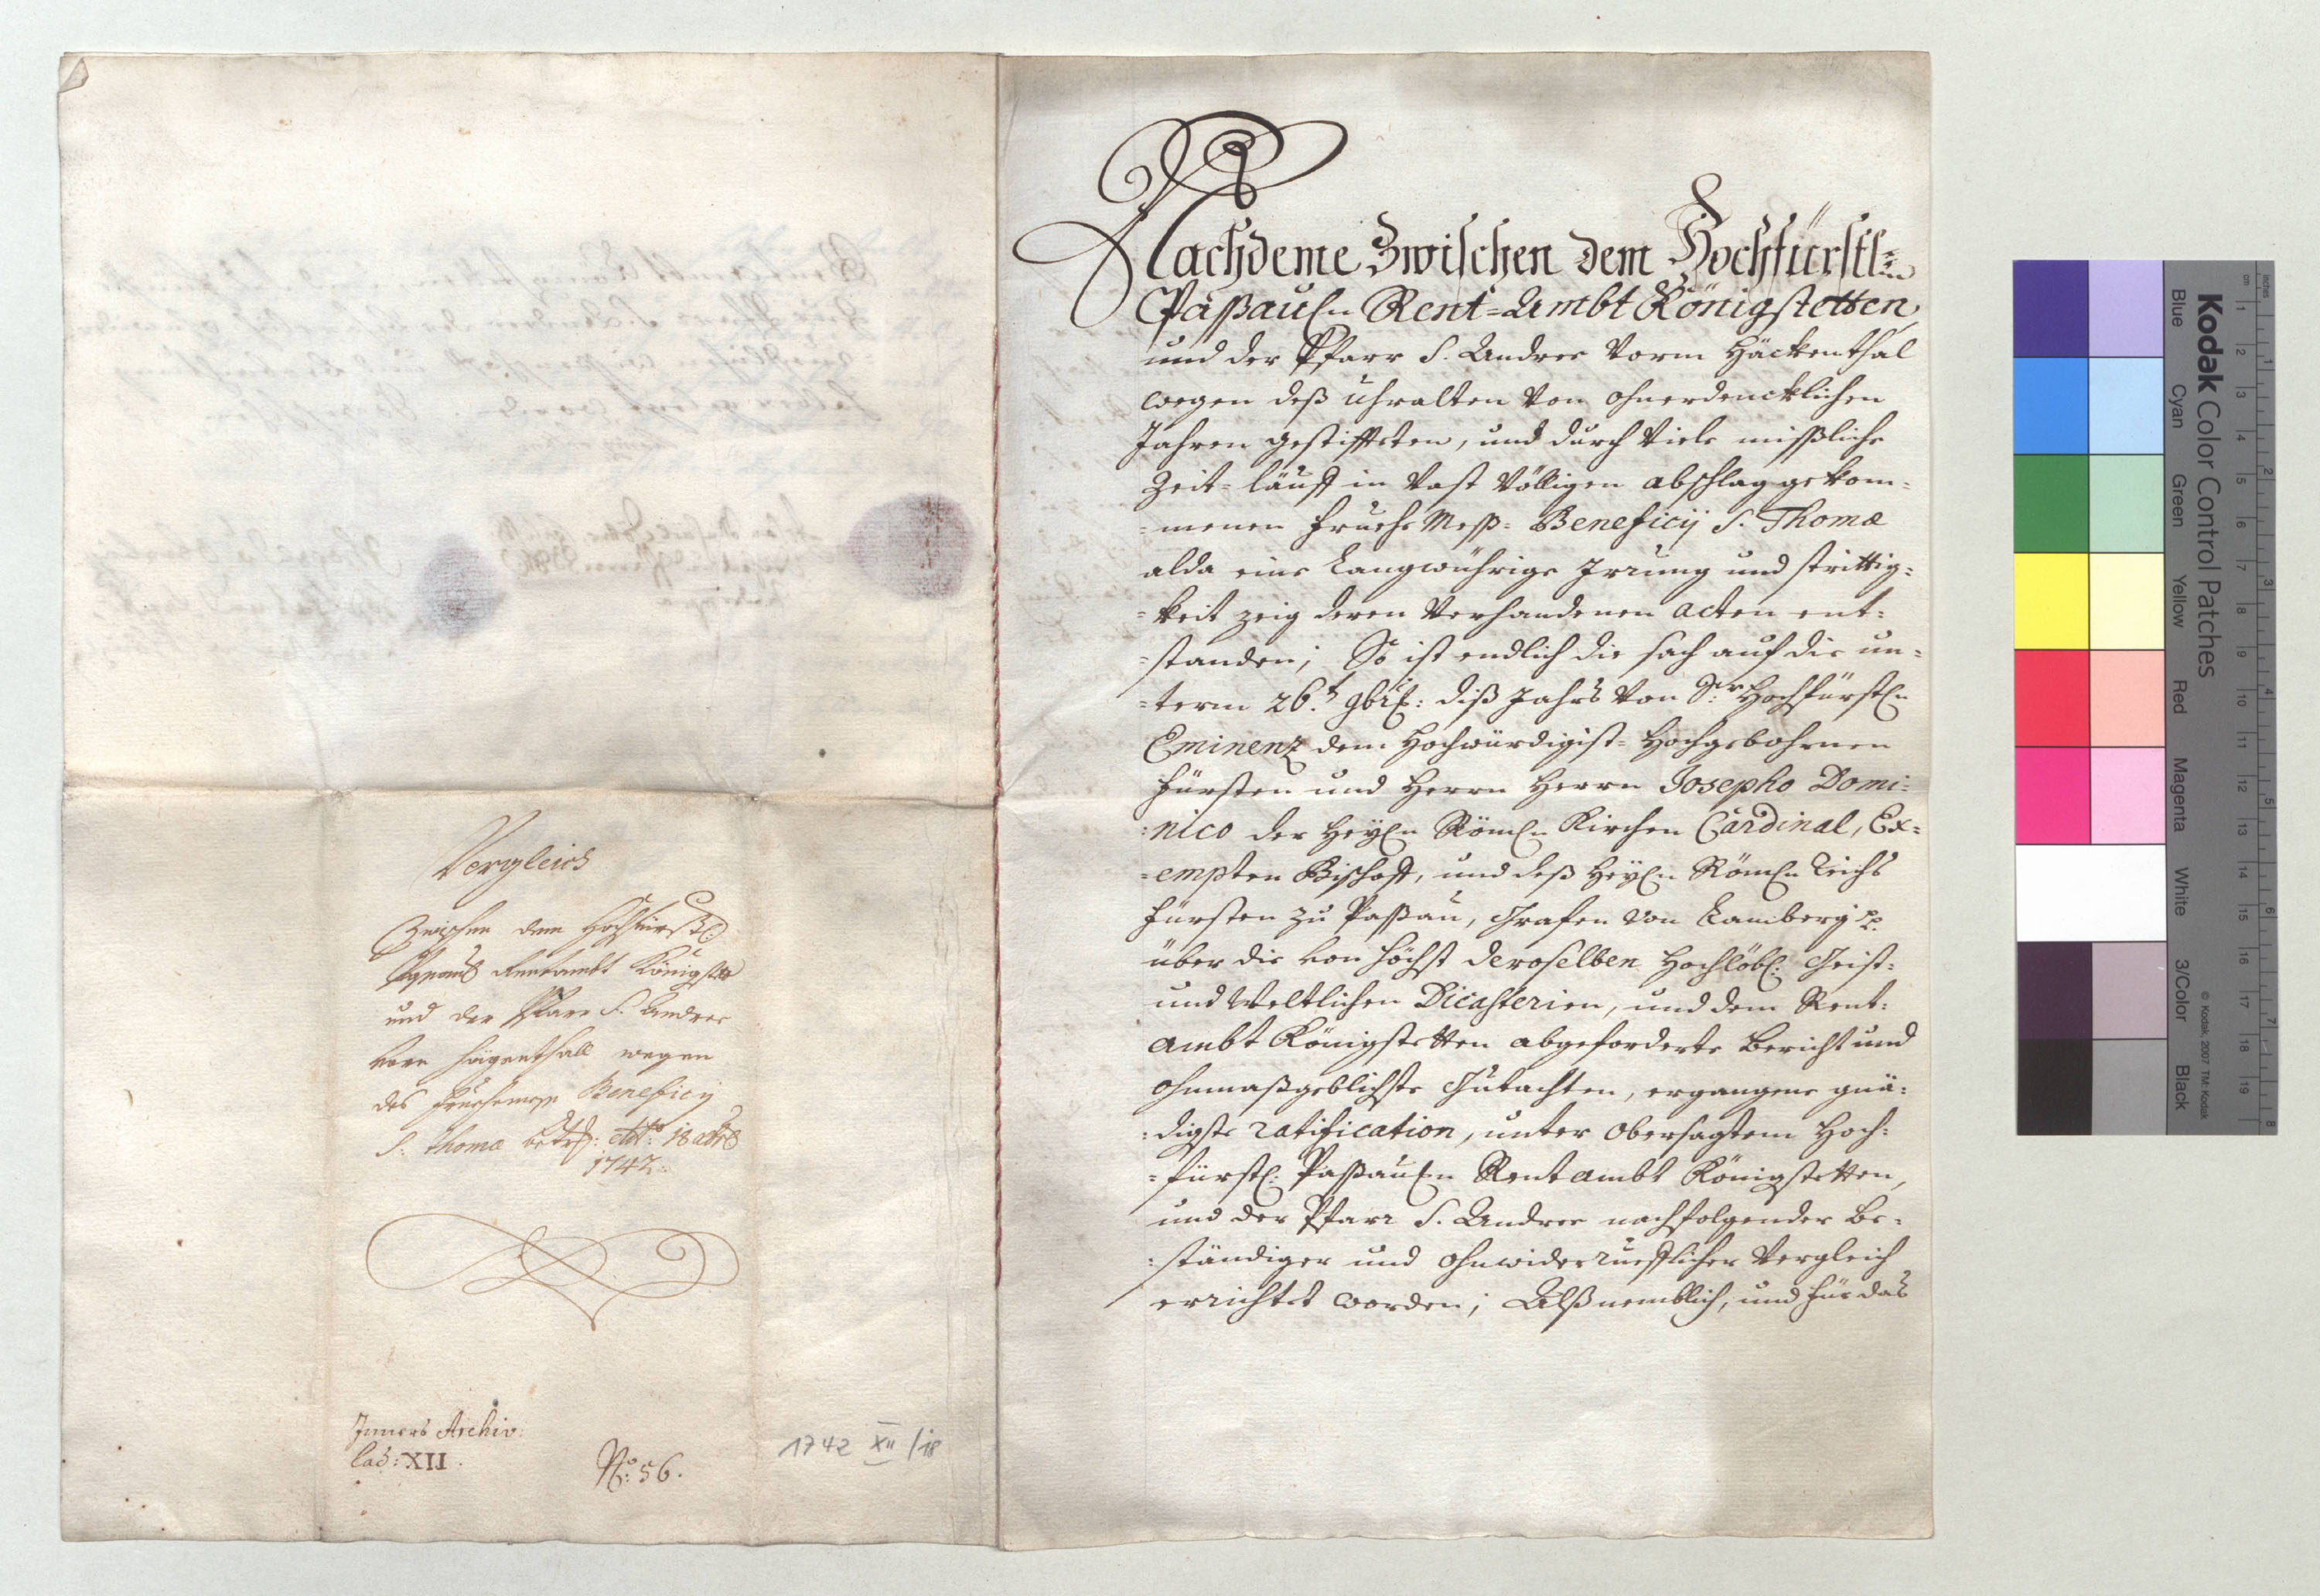 Vergleich
Zwischen dem Hochfürstl:
Passauis: Rentambt Königstett
und der Pfarr S. Andree
vorm Hägenthall wegen
des Fruehemeß Beneficij
S. Thomæ betref: dat: 18 xbris
1742.
Inners Archiv:
Lad: XII.
No: 56.
1742 XII/18
Nachdeme Zwischen dem Hochfürstl:en
Passaul:n Rent=Ambt Königstetten,
und der Pfarr S. Andree Vorm Häckenthal
wegen deß uhralten Von ohnerdencklichen
Jahren gestiffteten, und durch Viele mißliche
Zeit=läuff in Vast Völligen abschlag gekom=
=menen Fruehe Meß= Beneficij S. Thomæ
alda eine Langwührige Irrung und strittig=
=keit zeig deren Verhandenen Acten ent=
=standen; So ist endlich die sach auf die un=
=term 26.t 9bris: diß Jahrs Von Sr. Hochfürstl:n
Eminenz dem Hochwürdigist= Hochgebohrnen
Fürsten und Herrn Herrn Josepho Domi=
=nico der Heyl:n Röml:n Kirchen Cardinal, Ex=
=empten Bischoff, und deß Heyl:n Röml:n Reichs
Fürsten zu Passau, Grafen von Lamberg pp.
über die von Höchst deroselben Hochlöbl: Geist=
und Weltlichen Dicasterien, und dem Rent=
ambt Königstetten abgeforderte Bericht und
ohnmaßgeblichste Gutachten, ergangene gnä=
=digste ratification, unter obersagtem Hoch=
=fürstl: Passaul:n Rentambt Königstetten,
und der Pfarr S. Andree nachfolgender be=
=ständiger und ohnwiderruefflicher Vergleich
errichtet worden; Alß nemblich, und für das
Kodak Color Control Patches
Blue Cyan Green Yellow Red Magenta White 3/Color Black
© Kodak, 2007 TM: Kodak